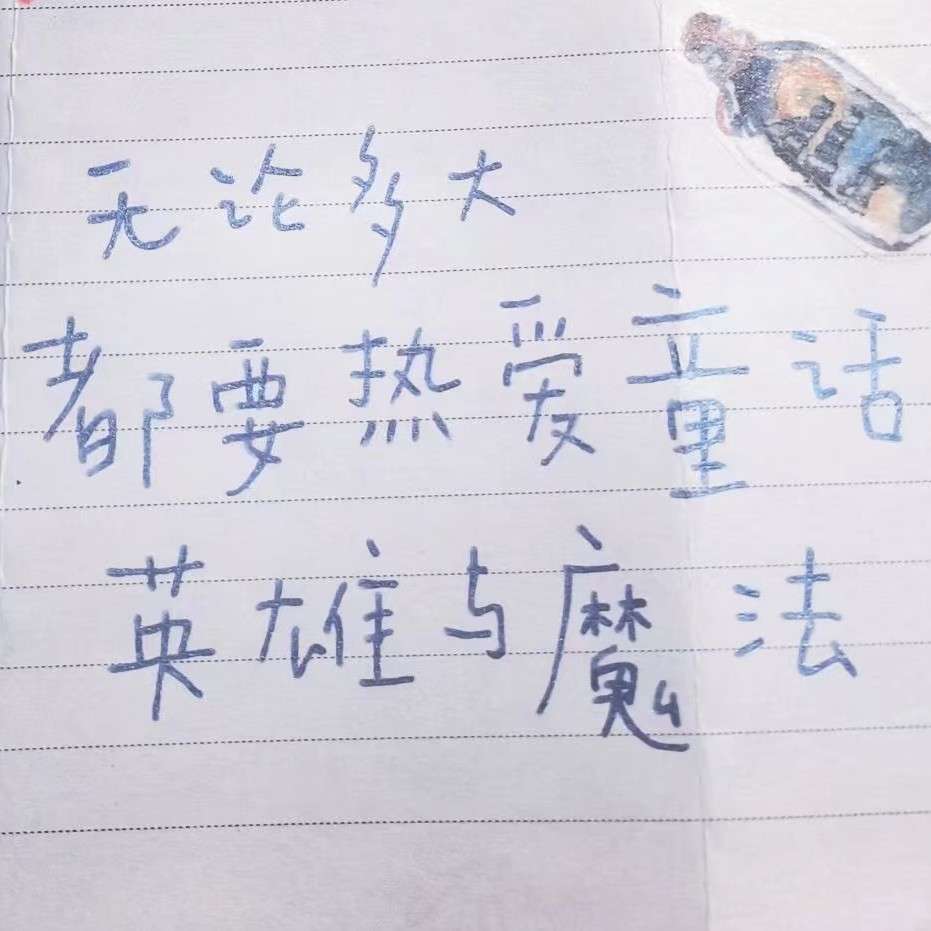 无论多大
都要热爱童话
英雄与魔法